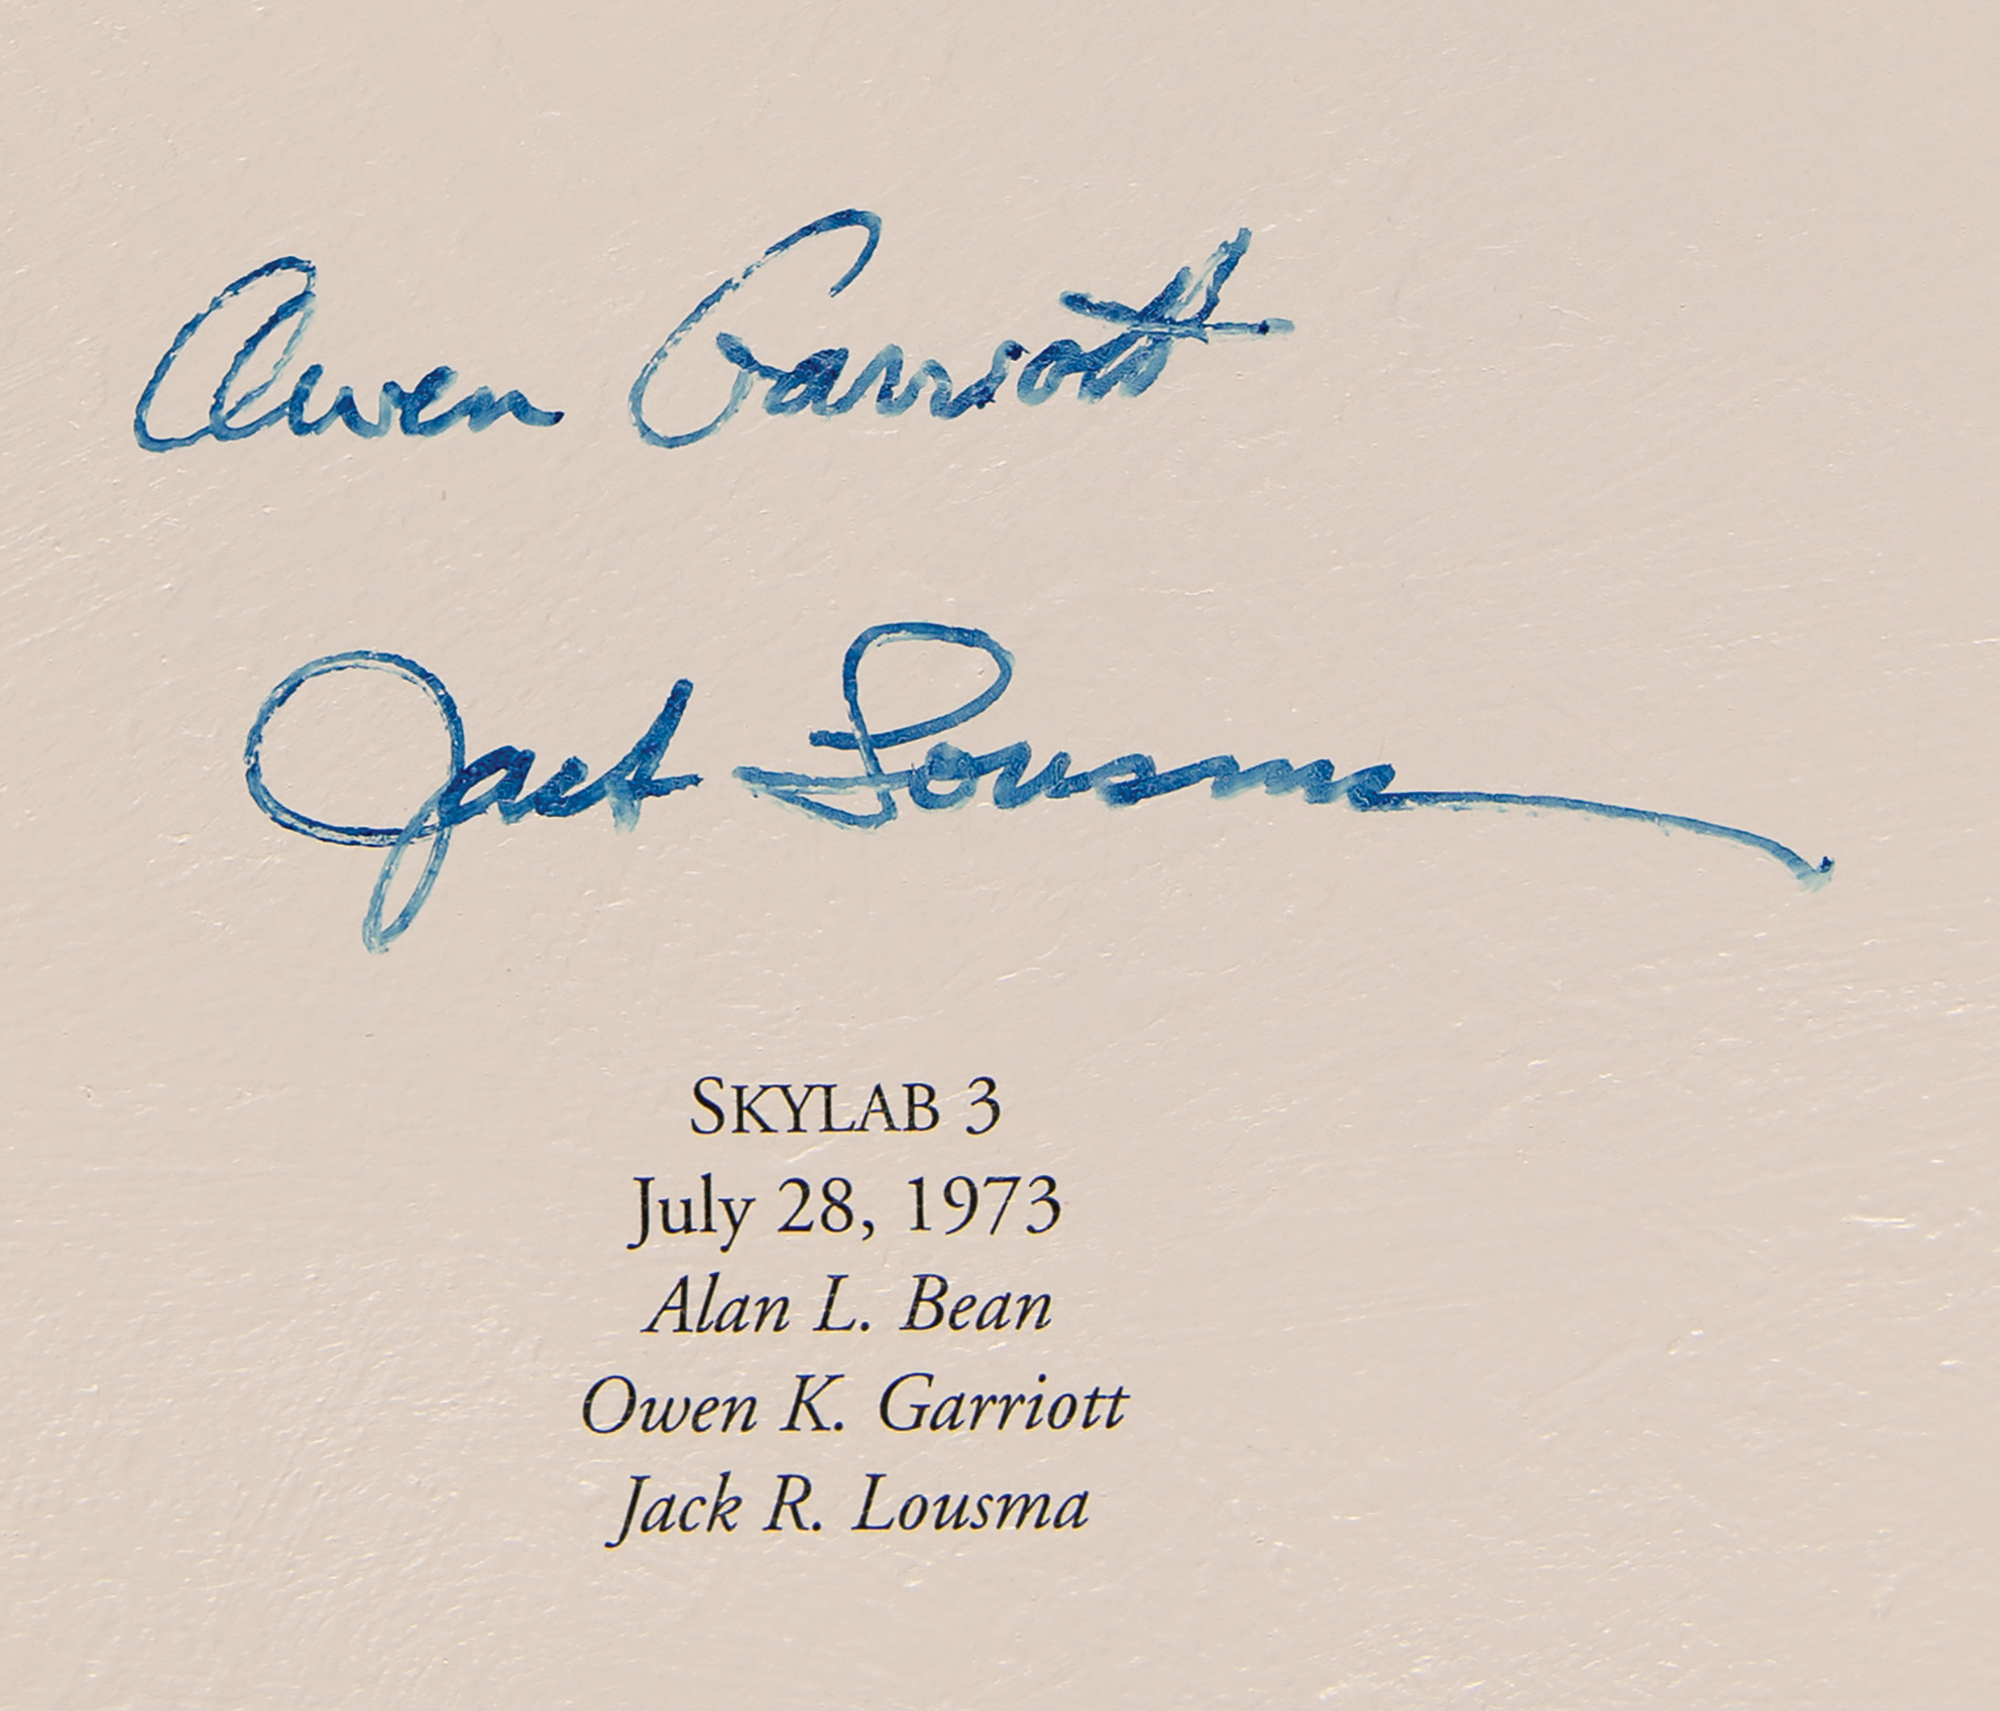 Owen Garriott
Jack Lousma
SKYLAB 3
July 28, 1973
Alan L. Bean
Owen K. Garriott
Jack R. Lousma